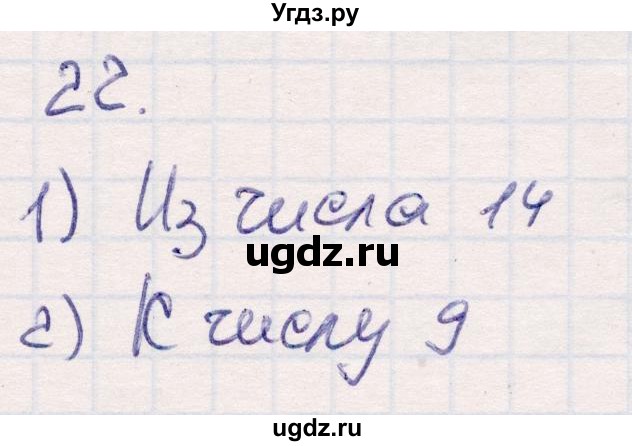 Угдз.ру
22.
1) Из числа 14
ugdz.ru
2) К числу 9
ugdz.ru